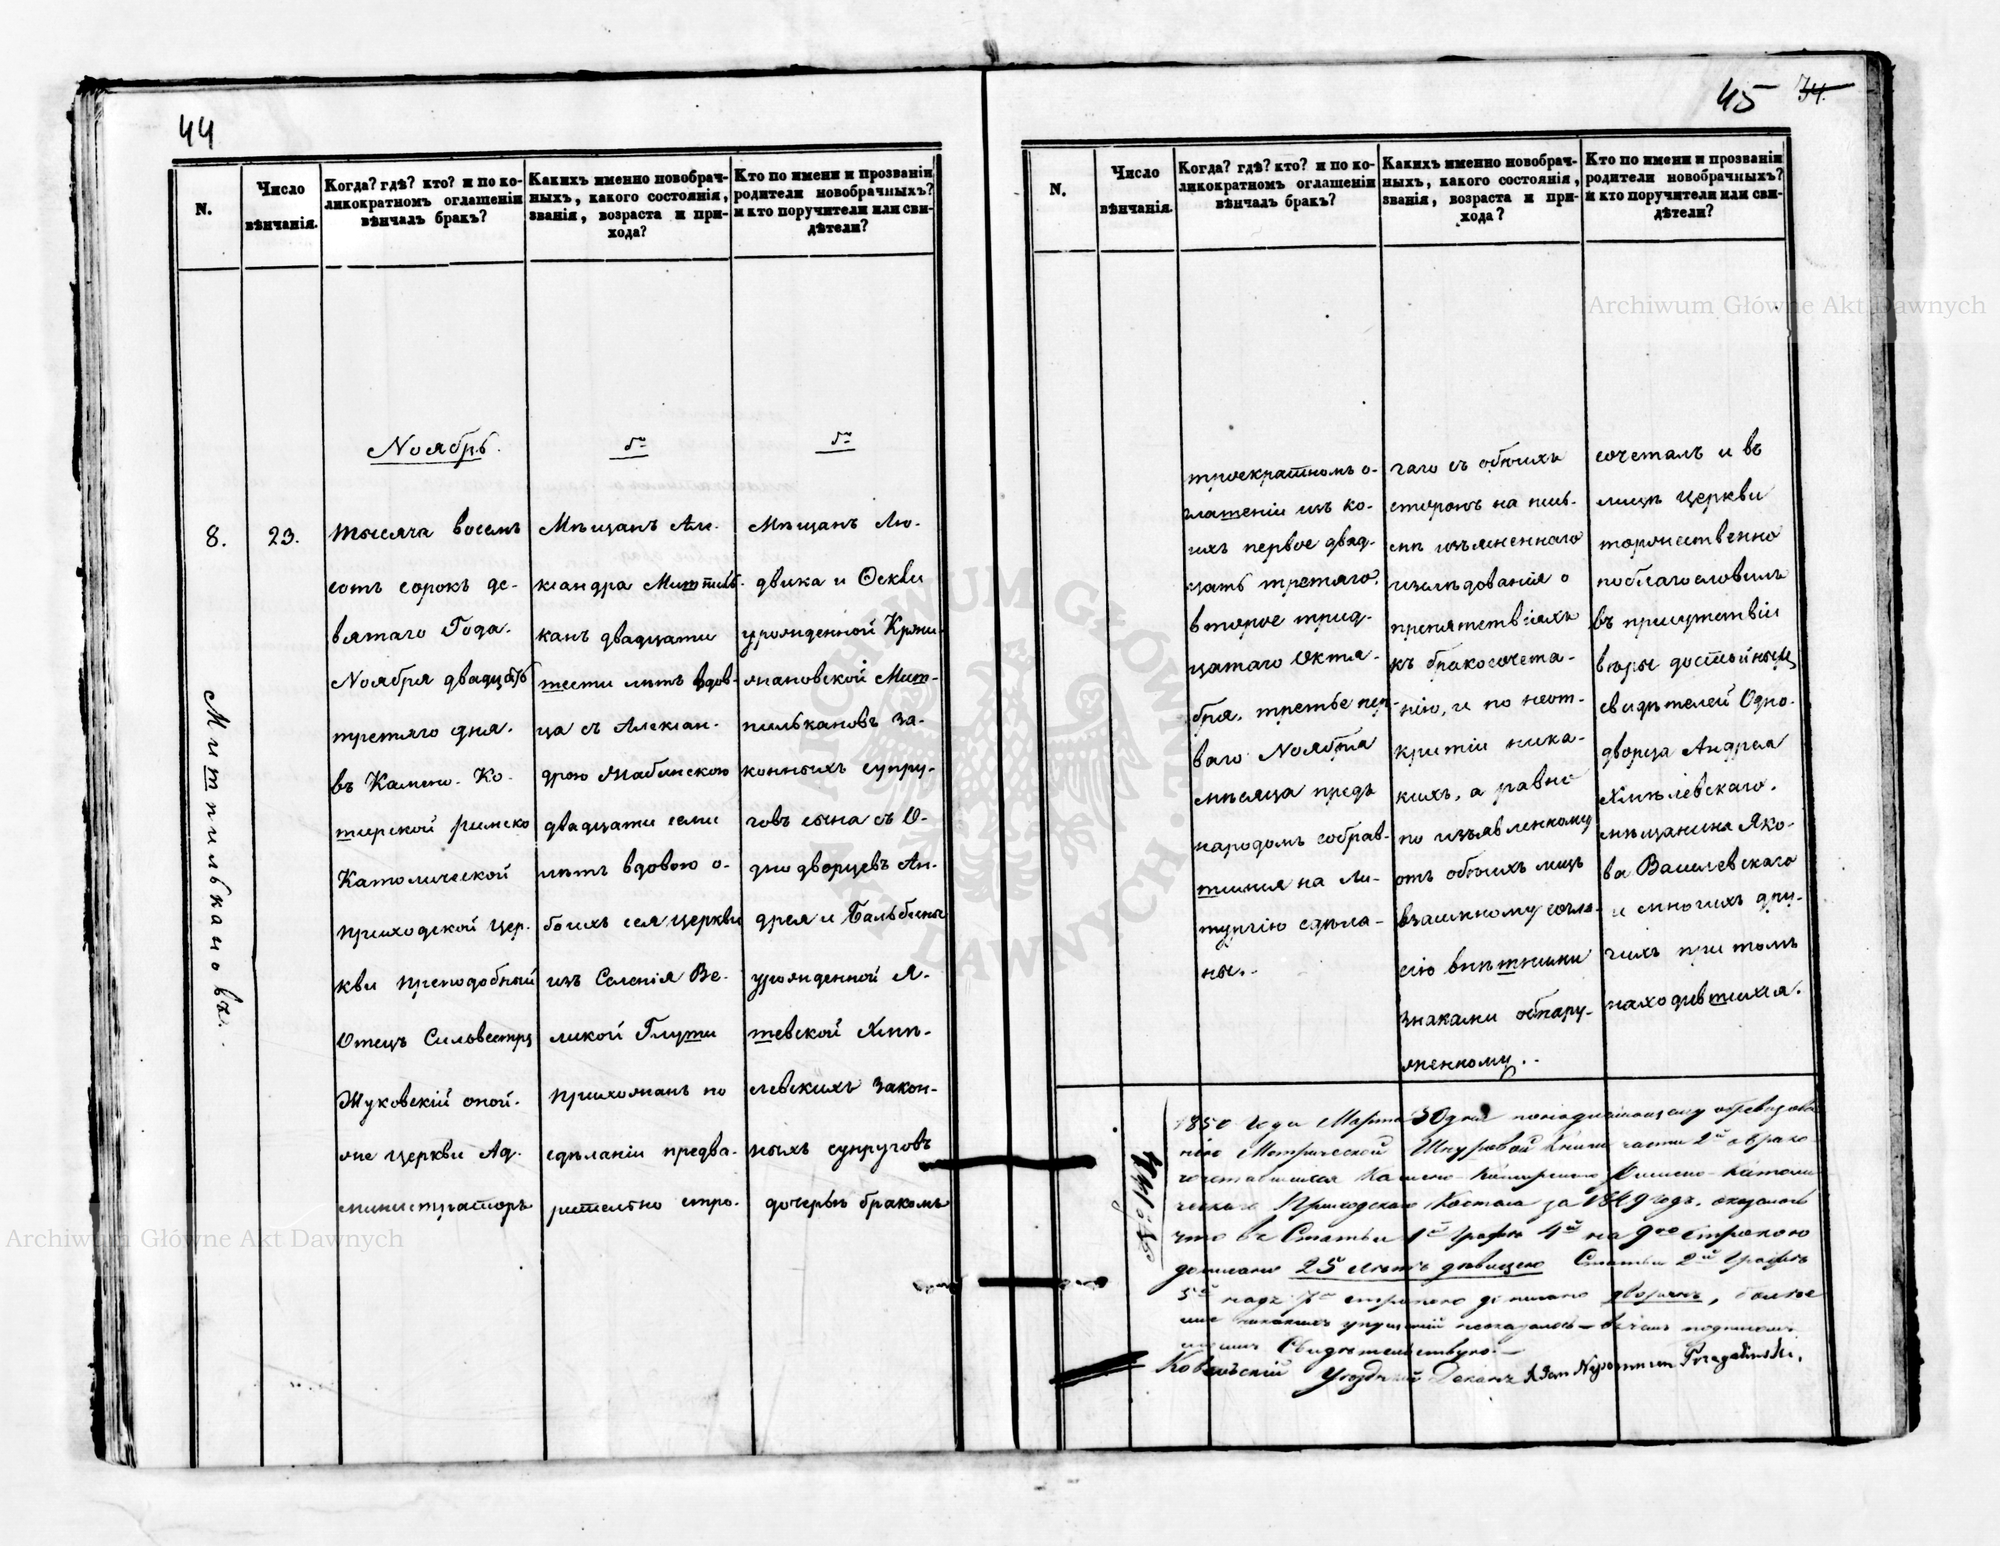 44
N.
Число
вѣнчанія.
Когда? гдѣ? кто? и по ко-
ликократномъ оглашеніи
вѣнчалъ бракъ?
Какихъ именно новобрач-
ныхъ, какого состоянія,
званія, возраста и при-
хода?
Кто по имени и прозваніи
родители новобрачныхъ?
и кто поручители или сви-
дѣтели?
Митпилькановъ.
8.
23.
Ноябрь.
тысяча восемь
сотъ сорокъ де-
вятаго Года.
Ноября двадцать
третяго дня.
въ Камено-Ко-
ширской римско
Католической
приходской цер-
кви преподобный
Отецъ Сильвестръ
Жуковскій оной-
же церкви Ад-
министраторъ
Мѣщанъ Ал-
ександра Митпиль-
канъ двадцати
шести лѣтъ вдов-
ца съ Алексан-
дрою Жабинскою
двадцати семи
лѣтъ вдовою о-
боихъ сея церкви
изъ Селенія Ве-
ликой Глуши
прихожанъ по
сдѣланіи предва-
рительно стро-
Мѣщанъ Лю-
двика и Θеклы
урожденной Кржи-
жановской Мит-
пилькановъ за-
конныхъ супру-
говъ сына съ О-
днодворцевъ Ан-
дрея и Бальбины
урожденной Я-
шевской Хмѣ-
левскихъ закон-
ныхъ супруговъ
дочерью бракомъ
45 34.
N.
Число
вѣнчанія.
Когда? гдѣ? кто? и по ко-
ликократномъ оглашеніи
вѣнчалъ бракъ?
Какихъ именно новобрач-
ныхъ, какого состоянія,
званія, возраста и при-
хода?
Кто по имени и прозваніи
родители новобрачныхъ?
и кто поручители или сви-
дѣтели?
троекратномъ о-
глашеніи изъ ко-
ихъ первое двад-
цать третяго.
второе трид-
цатаго Октя-
бря, третье пер-
ваго Ноября
мѣсяца предъ
народомъ собрав-
шимся на Ли-
тургію сдѣла-
ны.
гаго съ обоихъ
сторонъ на пись-
мѣ изъясненнаго
изслѣдованія о
препятствіяхъ
къ бракосочета-
нію, и по неот-
крытіи ника-
кихъ, а равно
по изъявленному
отъ обоихъ лицъ
взаимному согла-
сію внѣшними
знаками обнару-
женному.
сочеталъ и въ
лицѣ церкви
торжественно
поблагословилъ
въ присутствіи
вѣры достойныхъ
свидѣтелей Одно-
дворца Андрея
Хмѣлевскаго.
мѣщанина Яко-
ва Василевскаго
и многихъ дру-
гихъ при томъ
находившихся.
№ 144
1850 года Марта 30 дня по надлежащему обревизова
нію Метрической Шнуровой Книги части 2й о брако-
сочетавшихся Камено-Каширскаго Римско-Католи
ческаго Приходскаго Костела за 1849 годъ, оказалось
что въ Статьи 1й графѣ 4й на 9ою строкою
дописано 25 лѣтъ дѣвицею Статьи 2й графѣ
5й надъ 7ю строкою дописано дворянъ, болѣе
никакихъ упущеній неоказалось — въ чемъ подписомъ
Свидѣтельствую.—
Ковельскій Уѣздный Деканъ X Jan Nepomucen Przegaliński.
Archiwum Główne Akt Dawnych
Archiwum Główne Akt Dawnych
ARCHIWUM GŁÓWNE AKT DAWNYCH